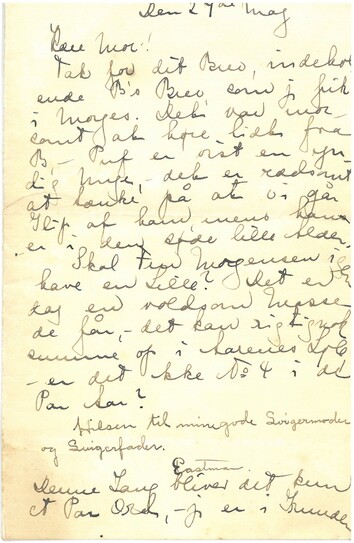 Den 27de Maj
Kære Mor!
Tak for dit Brev, indehol
ende B's Brev som jeg fik
i Morges. Det var mor-
somt at høre lidt fra
B, - Puf er vist en yn
dig Unge, - det er rædsomt
at tænke på at vi går
Glip af ham mens han
er i den søde lille Alder.
Skal Fru Morgensen igen
have en Lille? Det er
dog en voldsom Masse
de får, - det kan rigtignok
summe op i Aarenes Løb
- er det ikke No 4 i de
Par Aar?
Hilsen til min gode Svigermoder
og Svigerfader.
Eastman.
Denne Gang bliver det kun
et Par Ord, - jeg er i Grunden